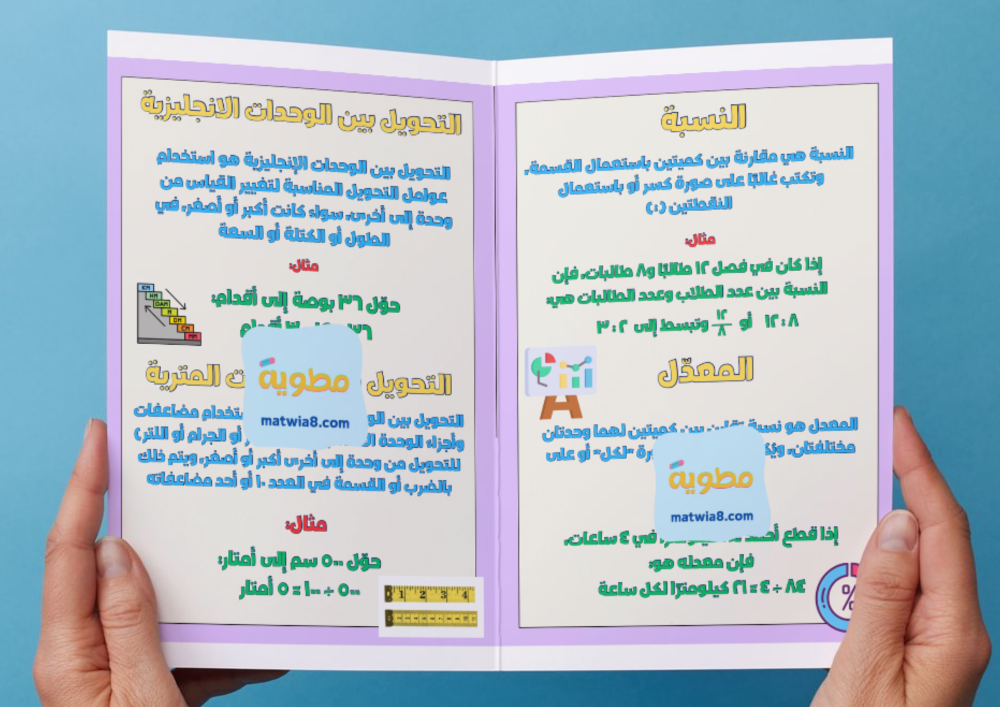 النسبة
النسبة هي مقارنة بين كميتين باستعمال القسمة،
وتكتب غالبًا على صورة كسر أو باستعمال
النقطتين (:)
مثال:
إذا كان في فصل ١٢ طالبًا و٨ طالبات، فإن
النسبة بين عدد الطلاب وعدد الطالبات هي:
١٢:٨ أو ١٢/٨ وتبسط إلى ٣:٢
المعدّل
المعدل هو نسبة بين كميتين لهما وحدتان
مختلفتان، "لكل" أو على
مطوية
matwia8.com
إذا قطع في ٤ ساعات،
فإن معدله هو:
٨٤ ÷ ٤ = ٢١ كيلومترًا لكل ساعة
%
التحويل بين الوحدات الانجليزية
التحويل بين الوحدات الإنجليزية هو استخدام
عوامل التحويل المناسبة لتغيير القياس من
وحدة إلى أخرى، سواء كانت أكبر أو أصغر، في
الطول أو الكتلة أو السعة
مثال:
حوّل ٣٦ بوصة إلى أقدام:
أقدام
KM
HM
DAM
M
DM
CM
MM
التحويل المترية
مطوية
matwia8.com
التحويل بين مضاعفات
وأجزاء الوحدة أو الجرام أو اللتر)
للتحويل من وحدة إلى أخرى أكبر أو أصغر، ويتم ذلك
بالضرب أو القسمة في العدد ١٠ أو أحد مضاعفاته
مثال:
حوّل ٥٠٠ سم إلى أمتار:
٥٠٠ ÷ ١٠٠ = ٥ أمتار
1 2 3 4